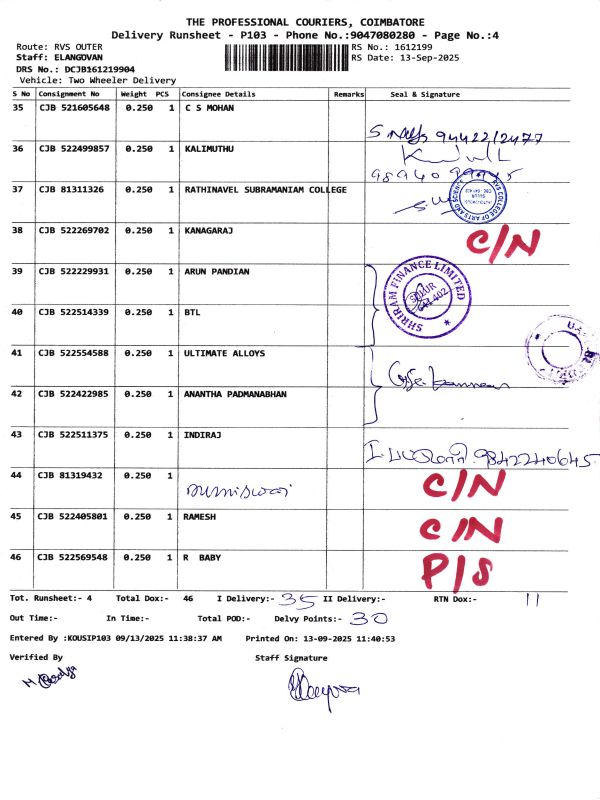 THE PROFESSIONAL COURIERS, COIMBATORE
Delivery Runsheet - P103 - Phone No.:9047080280 - Page No.:4
Route: RVS OUTER RS No.: 1612199
Staff: ELANGOVAN RS Date: 13-Sep-2025
DRS No.: DCJB161219904
Vehicle: Two Wheeler Delivery
S No Consignment No Weight PCS Consignee Details Remarks Seal & Signature
35 CJB 521605648 0.250 1 C S MOHAN
9442212477
36 CJB 522499857 0.250 1 KALIMUTHU
37 CJB 81311326 0.250 1 RATHINAVEL SUBRAMANIAM COLLEGE
RVS COLLEGE OF ARTS AND SCIENCE
38 CJB 522269702 0.250 1 KANAGARAJ C/N
39 CJB 522229931 0.250 1 ARUN PANDIAN
SHRIRAM FINANCE LIMITED
SULUR
641 402
40 CJB 522514339 0.250 1 BTL
41 CJB 522554588 0.250 1 ULTIMATE ALLOYS
42 CJB 522422985 0.250 1 ANANTHA PADMANABHAN
43 CJB 522511375 0.250 1 INDIRAJ 9842240645
44 CJB 81319432 0.250 1 C/N
45 CJB 522405801 0.250 1 RAMESH C/N
46 CJB 522569548 0.250 1 R BABY P/S
Tot. Runsheet:- 4 Total Dox:- 46 I Delivery:- 35 II Delivery:- RTN Dox:- 11
Out Time:- In Time:- Total POD:- Delvy Points:- 30
Entered By :KOUSIP103 09/13/2025 11:38:37 AM Printed On: 13-09-2025 11:40:53
Verified By Staff Signature